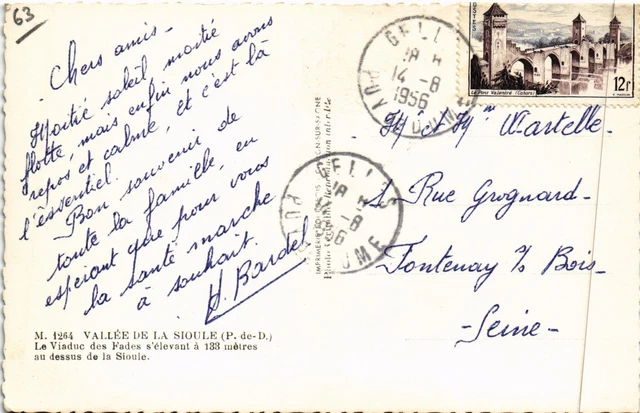 63
Chers amis -
Moitié soleil, moitié
flotte, mais enfin nous avons
repos et calme, et c'est là
l'essentiel.
Bon souvenir de
toute la famille, en
espérant que pour vous
la santé marche
à souhait.
H. Bardel
M. 1264 VALLÉE DE LA SIOULE (P. de-D.)
Le Viaduc des Fades s'élevant à 133 mètres
au dessus de la Sioule.
GELLES
18 H
14-8
1956
PUY DE DOME
GELLES
18 H
-8
PUY DOME
POSTES
Le Pont Valentré (Cahors)
12F
M et Mme Wartelle -
1 Rue Grognard -
Fontenay s/s Bois -
- Seine -